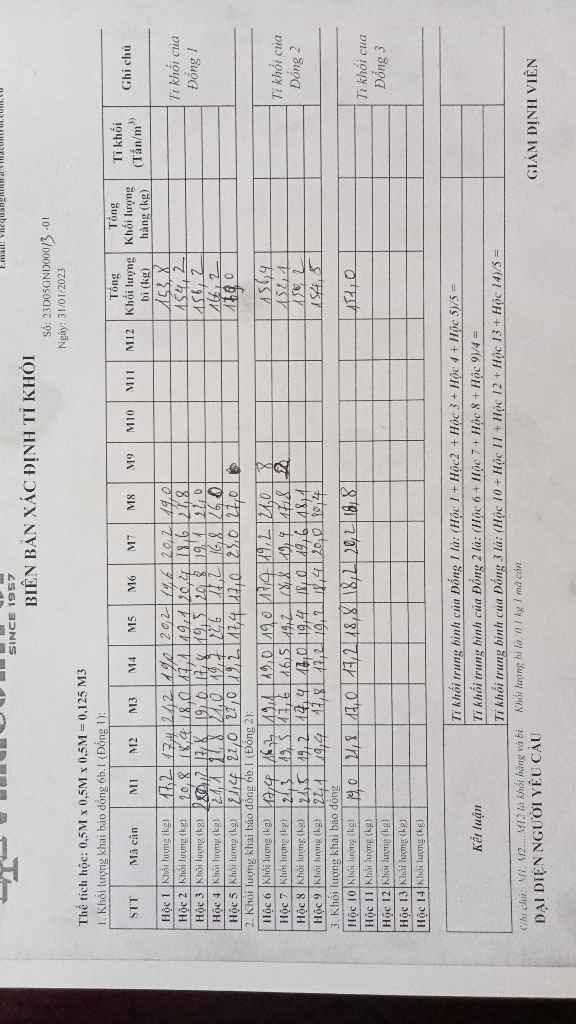 SINCE 1957
BIÊN BẢN XÁC ĐỊNH TỈ KHỐI
Số: 23D05GND00013 -01
Ngày: 31/01/2023
Thể tích hộc: 0,5M x 0,5M x 0,5M = 0,125 M3
1. Khối lượng khai báo đống 6b.1 (Đống 1):
STT Mã cân M1 M2 M3 M4 M5 M6 M7 M8 M9 M10 M11 M12 Tổng Khối lượng bì (kg) Tổng Khối lượng hàng (kg) Tỉ khối (Tấn/m³) Ghi chú
Hộc 1 Khối lượng (kg) 17,2 17,4 21,2 19,0 20,2 19,6 20,2 19,0 153,8 Tỉ khối của Đống 1
Hộc 2 Khối lượng (kg) 20,8 18,4 18,0 17,1 19,1 20,4 18,6 21,8 154,2
Hộc 3 Khối lượng (kg) 17,8 19,0 17,8 19,5 20,8 19,1 22,0 156,2
Hộc 4 Khối lượng (kg) 21,1 21,8 21,0 19,7 22,6 17,2 16,8 26,0 166,2
Hộc 5 Khối lượng (kg) 21,4 22,0 22,0 19,2 17,4 17,0 23,0 27,0
2. Khối lượng khai báo đống 6b.1 (Đống 2):
Hộc 6 Khối lượng (kg) 17,4 19,1 19,0 19,0 17,4 19,2 21,0 8 156,4 Tỉ khối của Đống 2
Hộc 7 Khối lượng (kg) 21,3 19,5 17,6 16,5 19,2 18,8 19,4 17,8 152,1
Hộc 8 Khối lượng (kg) 21,5 19,2 17,4 19,4 18,0 19,6 18,1 150,2
Hộc 9 Khối lượng (kg) 22,1 19,4 17,8 17,2 19,2 18,4 20,0 20,4 154,5
3. Khối lượng khai báo đống
Hộc 10 Khối lượng (kg) 19,0 21,8 17,0 17,2 18,8 18,2 20,2 18,8 151,0 Tỉ khối của Đống 3
Hộc 11 Khối lượng (kg)
Hộc 12 Khối lượng (kg)
Hộc 13 Khối lượng (kg)
Hộc 14 Khối lượng (kg)
Kết luận
Tỉ khối trung bình của Đống 1 là: (Hộc 1 + Hộc2 + Hộc 3 + Hộc 4 + Hộc 5)/5 =
Tỉ khối trung bình của Đống 2 là: (Hộc 6 + Hộc 7 + Hộc 8 + Hộc 9)/4 =
Tỉ khối trung bình của Đống 3 là: (Hộc 10 + Hộc 11 + Hộc 12 + Hộc 13 + Hộc 14)/5 =
Ghi chú: M1, M2....M12 là khối hàng và bì. Khối lượng bì là: 0,1 kg 1 mã cân
ĐẠI DIỆN NGƯỜI YÊU CẦU
GIÁM ĐỊNH VIÊN